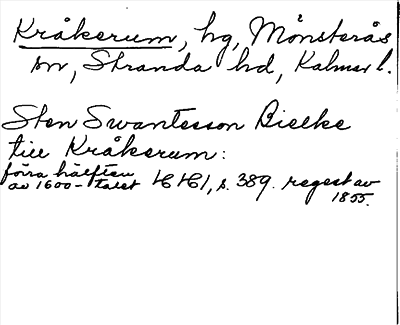 Kråkerum, hg, Mönsterås
sn, Stranda hd, Kalmar l.
Sten Swantesson Bielke
till Kråkerum:
förra hälften
av 1600-talet HH1, s. 389. regest av
1855.